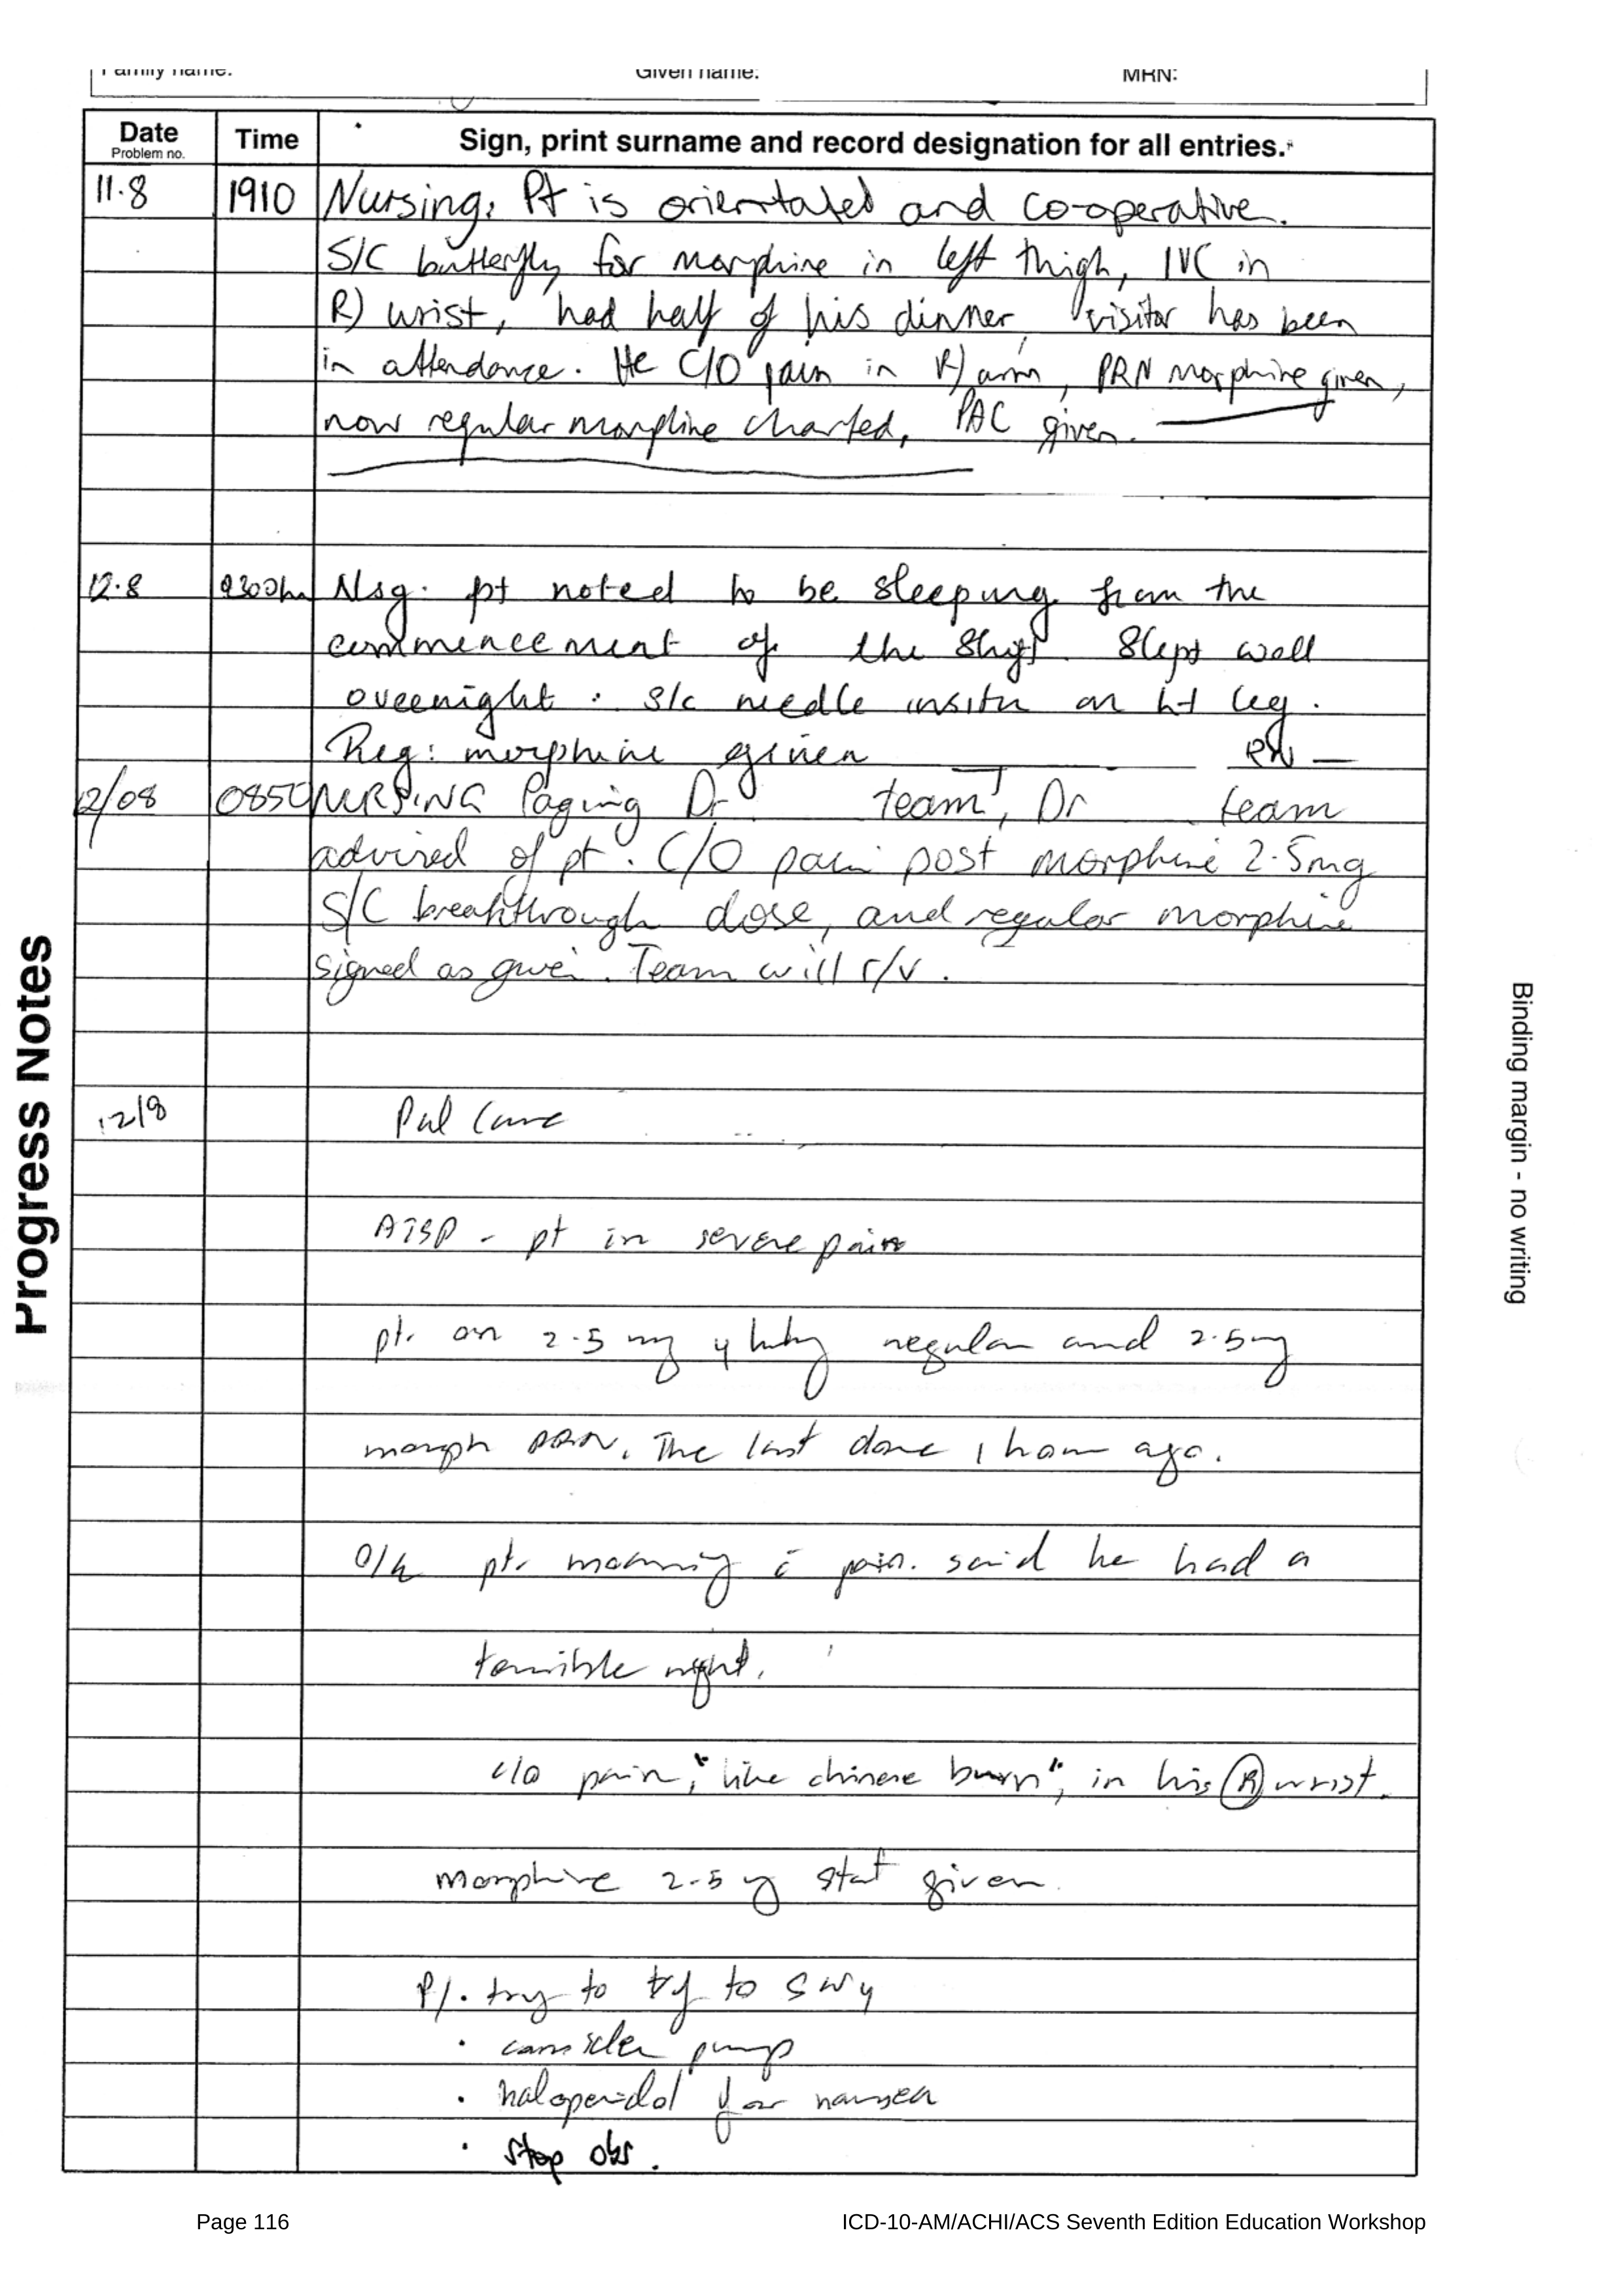 Family name: Given name: MRN:
Date Problem no. Time Sign, print surname and record designation for all entries.
11.8 1910 Nursing: Pt is orientated and co-operative.
S/C butterfly for morphine in left thigh, IVC in
R) wrist, had half of his dinner, visitor has been
in attendance. He C/O pain in R) arm, PRN morphine given,
now regular morphine charted, PAC given.
12.8 Nsg: pt noted to be sleeping from the
commencement of the shift. Slept well
overnight. S/c needle insitu on Lt leg.
Reg: morphine given RN
12/08 0850 NURSING Paging Dr team, Dr team
advised of pt. C/O pain post morphine 2.5mg
S/C breakthrough dose, and regular morphine
signed as given. Team will r/v.
12/8 Pal Care
ATSP - pt in severe pain
pt. on 2.5 mg 4 hrly regular and 2.5mg
morph PRN. The last done 1 hour ago.
O/E pt. moaning c̄ pain. said he had a
terrible night.
c/o pain, "like chinese burn", in his (R) wrist.
morphine 2.5 mg stat given.
P/. try to to
. consider pump
. haloperidol for nausea
. stop obs.
Progress Notes
Binding margin - no writing
Page 116 ICD-10-AM/ACHI/ACS Seventh Edition Education Workshop